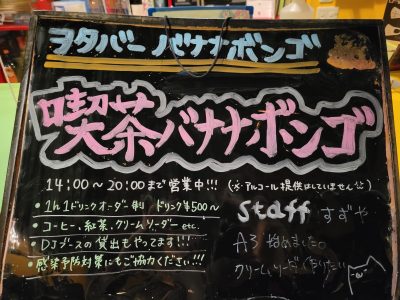 ヲタバー バナナボンゴ
喫茶バナナボンゴ
14:00〜20:00まで営業中!!! (※アルコール提供はしていません)
・1h 1ドリンクオーダー制 ドリンク¥500〜
・コーヒー、紅茶、クリームソーダー etc.
・DJブースの貸出もやってます!!!
・感染予防対策にもご協力ください!!!
staff すずや
A3 始めました。
クリームソーダ 作りたい